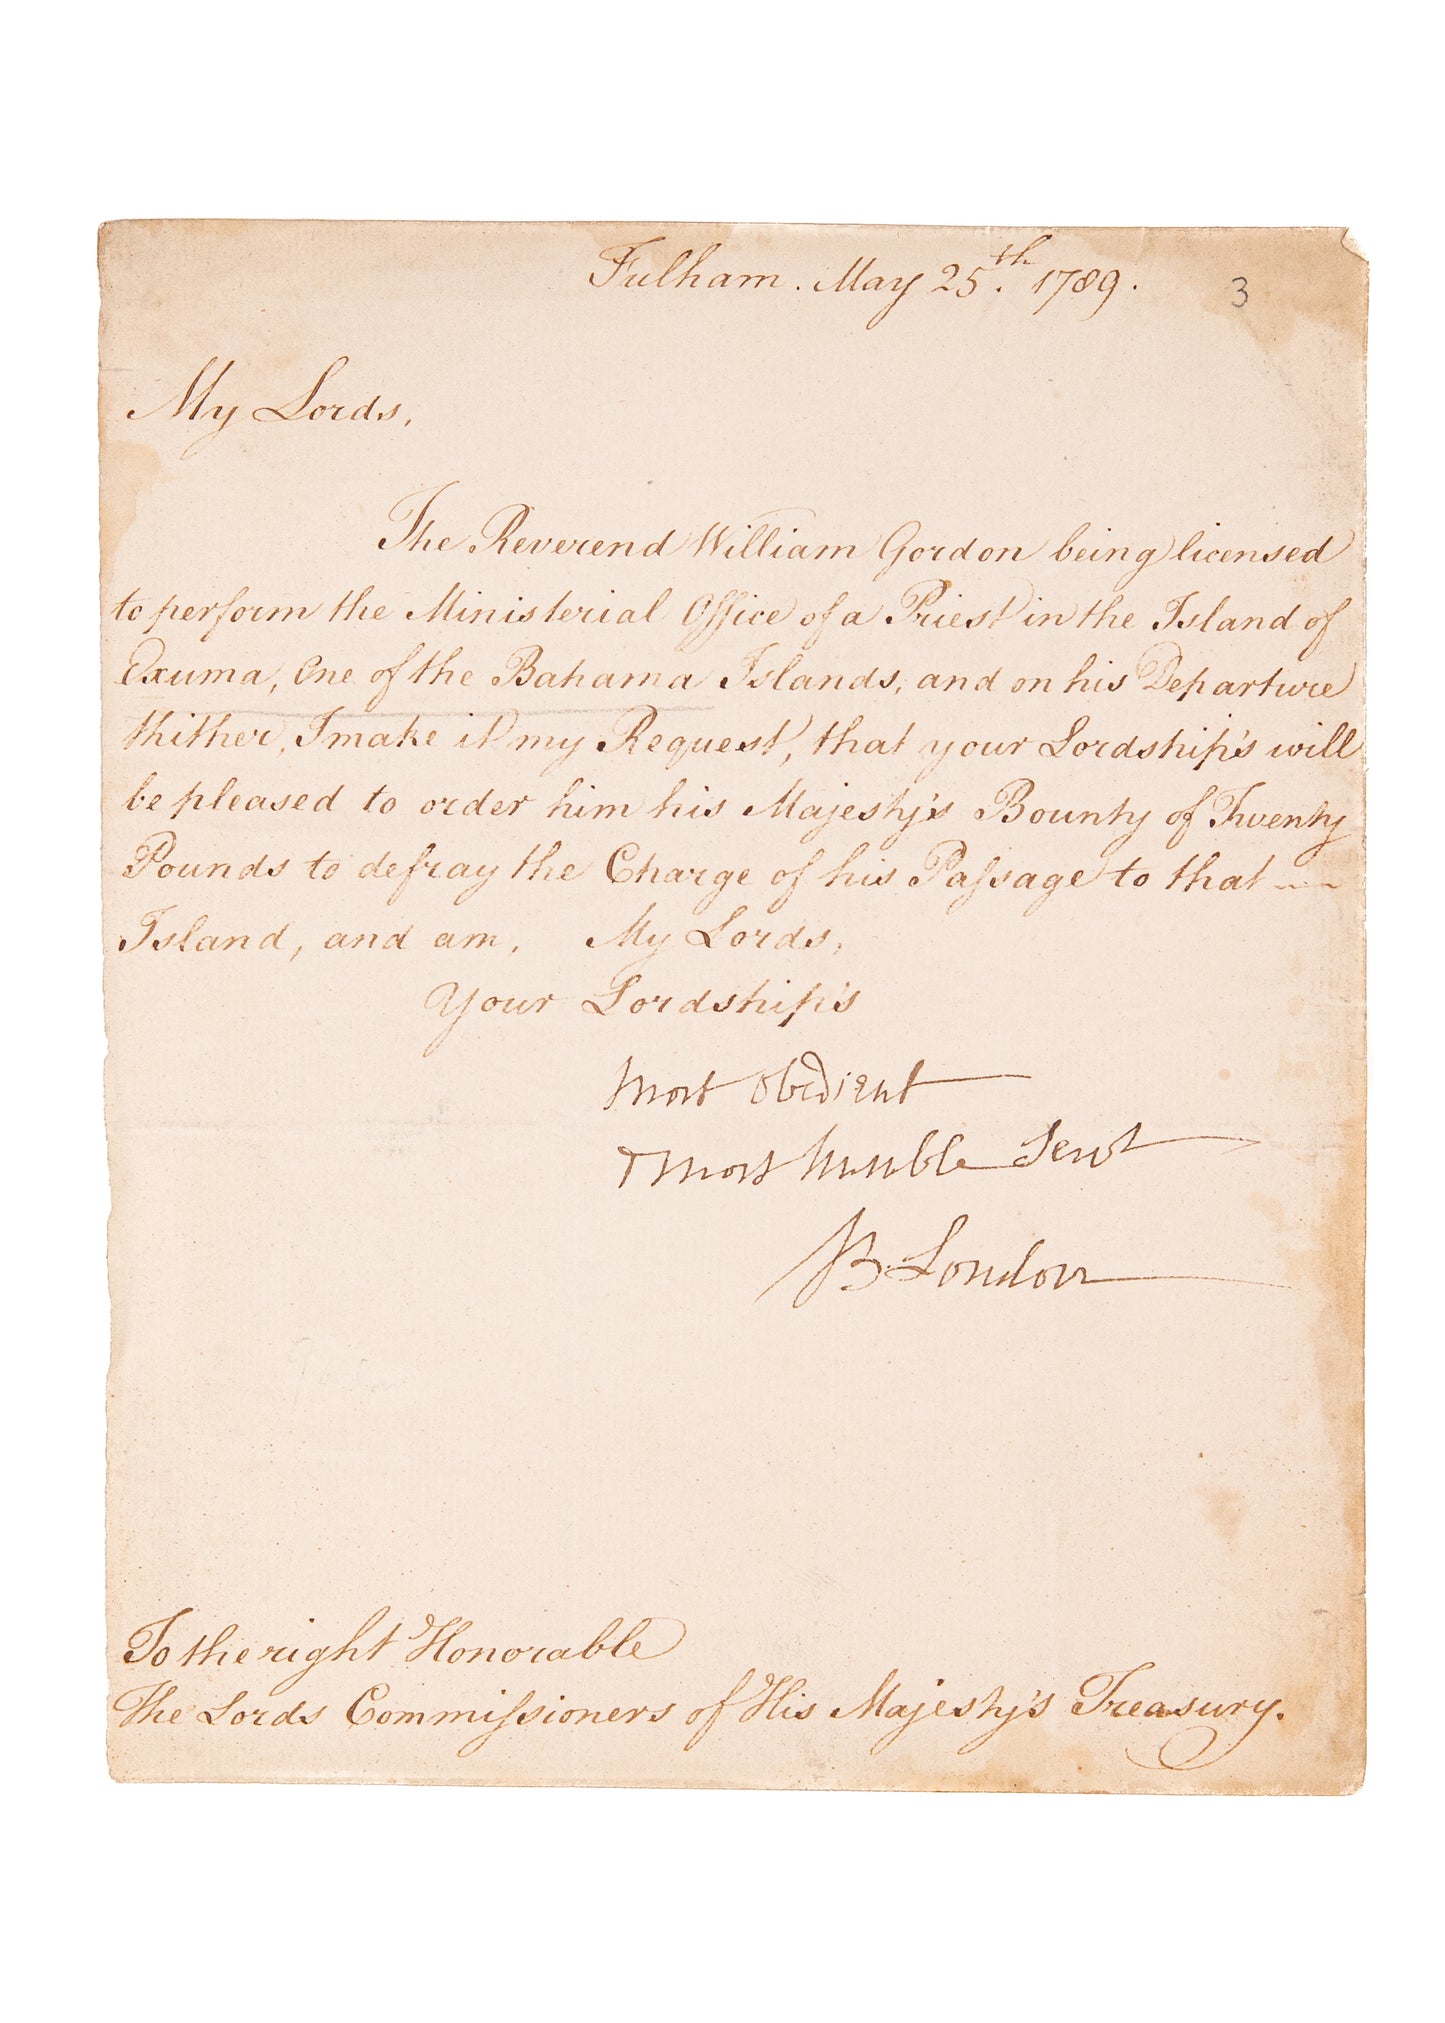 Fulham. May 25.th 1789.
3
My Lords,
The Reverend William Gordon being licensed
to perform the Ministerial Office of a Priest in the Island of
Exuma, One of the Bahama Islands, and on his Departure
thither, I make it my Request, that your Lordship's will
be pleased to order him his Majesty's Bounty of Twenty
Pounds to defray the Charge of his Paſsage to that
Island, and am, My Lords,
Your Lordship's
Most Obedient
& Most humble Servt
B. London
To the right Honorable
The Lords Commiſsioners of His Majesty's Treasury.